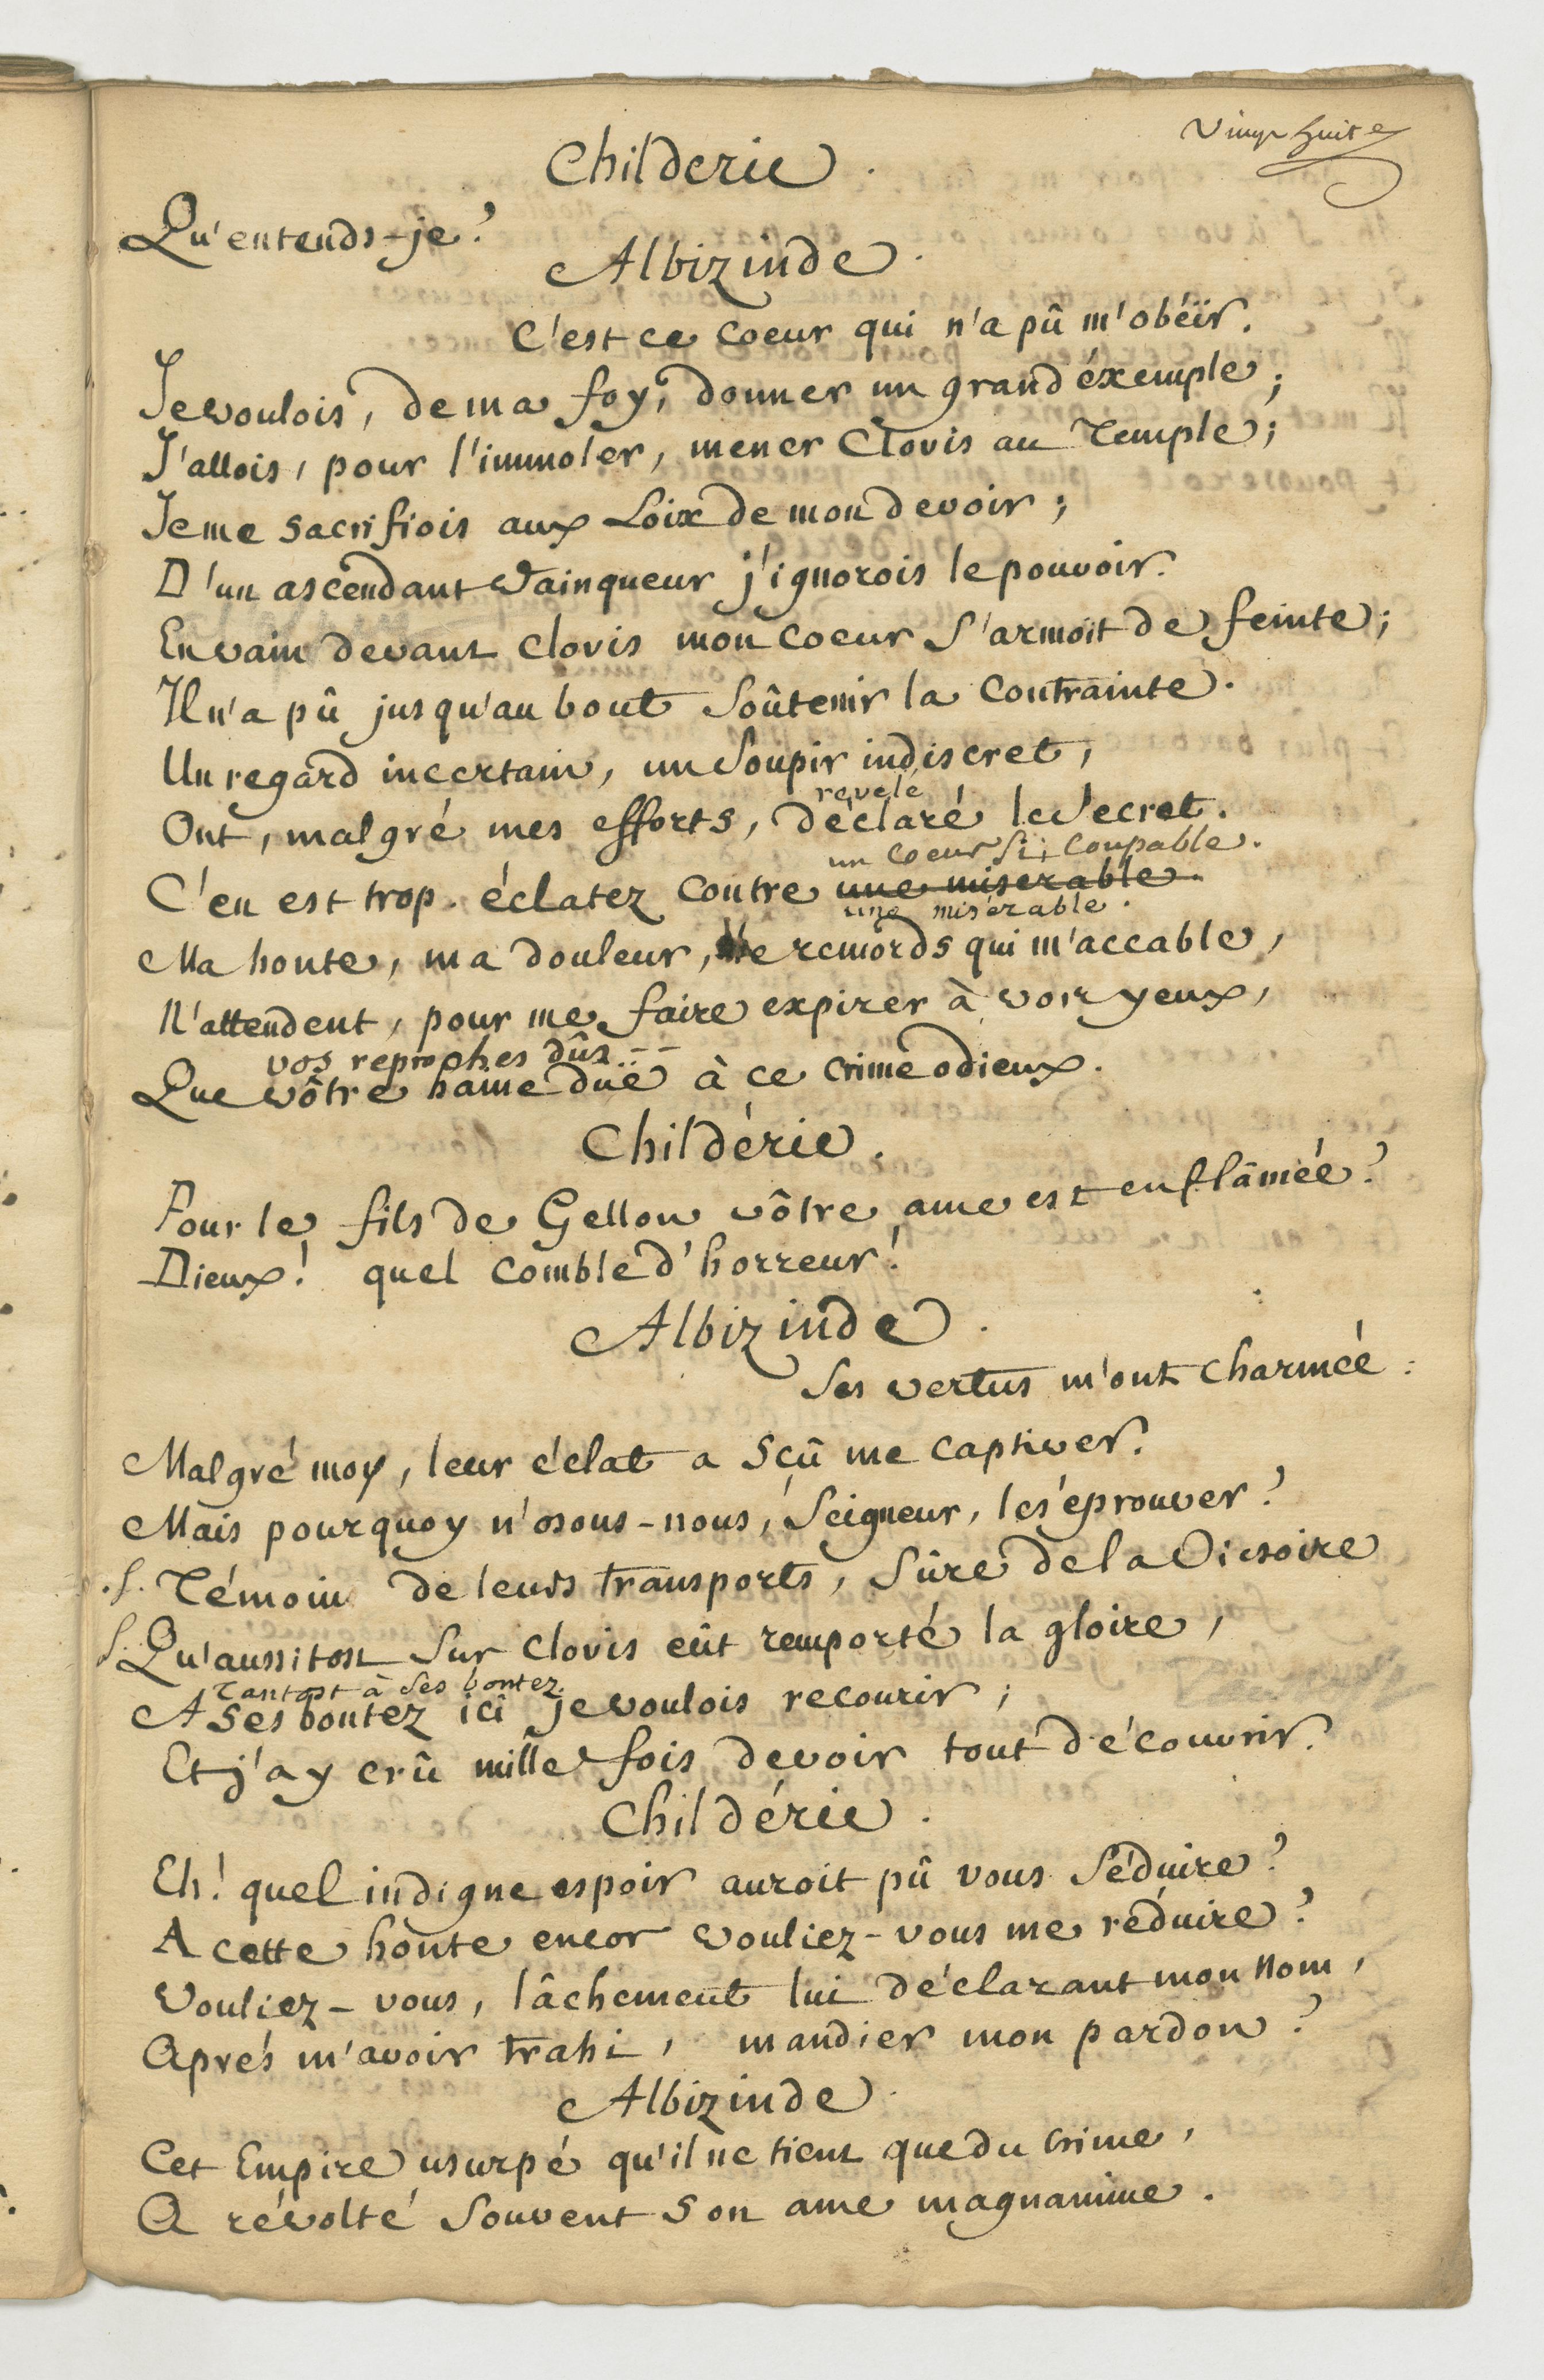 Vingt huit e
Childeric.
Qu'entends-je?
Albizinde.
C'est ce coeur qui n'a pû m'obéïr.
Je voulois, de ma foy, donner un grand éxemple;
J'allois, pour l'immoler, mener Clovis au Temple;
Je me sacrifiois aux Loix de mon devoir;
D'un ascendant vainqueur j'ignorois le pouvoir.
En vain devant Clovis mon coeur s'armoit de feinte;
Il n'a pû jusqu'au bout soûtenir la contrainte.
Un regard incertain, un soupir indiscret,
revelé
Ont, malgré mes efforts, déclaré le secret.
un coeur si coupable.
C'en est trop. éclatez contre une miserable.
une misérable.
Ma honte, ma douleur, le remords qui m'accable,
N'attendent, pour me faire expirer à vos yeux,
vos reproches dûs --
Que vôtre haine düe à ce crime odieux.
Childéric.
Pour le fils de Gellon vôtre ame est enflâmée?
Dieux! quel comble d'horreur!
Albizinde.
Ses vertus m'ont charmée:
Malgré moy, leur éclat a sçû me captiver.
Mais pourquoy n'osons-nous, Seigneur, les éprouver?
.s. Témoin de leurs transports, sûre de la Victoire
s. Qu'aussitost sur Clovis eût remporté la gloire,
Tantost à ses bontez
A ses bontez ici je voulois recourir;
Et j'ay crû mille fois devoir tout découvrir.
Childéric.
Eh! quel indigne espoir auroit pû vous séduire?
A cette honte encor vouliez-vous me réduire?
Vouliez-vous, lâchement lui déclarant mon nom,
Aprés m'avoir trahi, mandier mon pardon?
Albizinde.
Cet Empire usurpé qu'il ne tient que du crime,
A révolté souvent son ame magnanime.